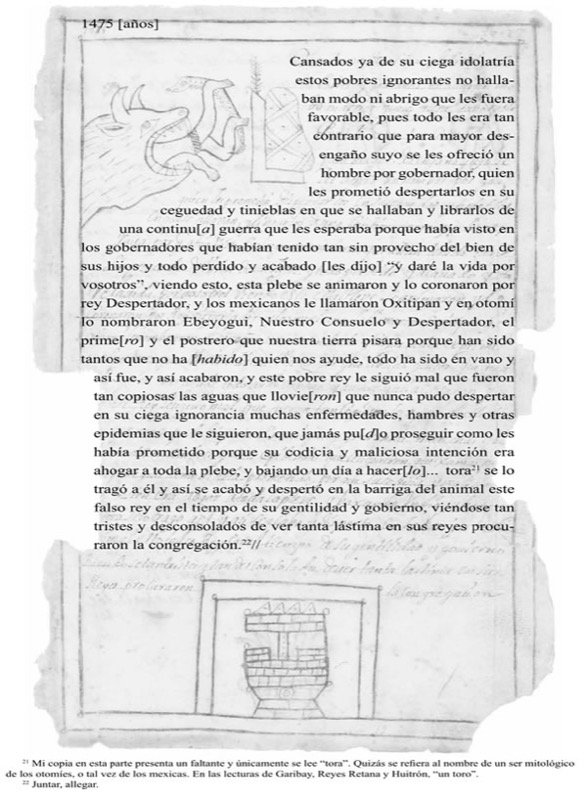 1475 [años]
Cansados ya de su ciega idolatría
estos pobres ignorantes no halla-
ban modo ni abrigo que les fuera
favorable, pues todo les era tan
contrario que para mayor des-
engaño suyo se les ofreció un
hombre por gobernador, quien
les prometió despertarlos en su
ceguedad y tinieblas en que se hallaban y librarlos de
una continu[a] guerra que les esperaba porque había visto en
los gobernadores que habían tenido tan sin provecho del bien de
sus hijos y todo perdido y acabado [les dijo] “y daré la vida por
vosotros”, viendo esto, esta plebe se animaron y lo coronaron por
rey Despertador, y los mexicanos le llamaron Oxitipan y en otomí
lo nombraron Ebeyogui, Nuestro Consuelo y Despertador, el
prime[ro] y el postrero que nuestra tierra pisara porque han sido
tantos que no ha [habido] quien nos ayude, todo ha sido en vano y
así fue, y así acabaron, y este pobre rey le siguió mal que fueron
tan copiosas las aguas que llovie[ron] que nunca pudo despertar
en su ciega ignorancia muchas enfermedades, hambres y otras
epidemias que le siguieron, que jamás pu[d]o proseguir como les
había prometido porque su codicia y maliciosa intención era
ahogar a toda la plebe, y bajando un día a hacer[lo]... tora²¹ se lo
tragó a él y así se acabó y despertó en la barriga del animal este
falso rey en el tiempo de su gentilidad y gobierno, viéndose tan
tristes y desconsolados de ver tanta lástima en sus reyes procu-
raron la congregación.²²//
²¹ Mi copia en esta parte presenta un faltante y únicamente se lee “tora”. Quizás se refiera al nombre de un ser mitológico
de los otomíes, o tal vez de los mexicas. En las lecturas de Garibay, Reyes Retana y Huitrón, “un toro”.
²² Juntar, allegar.